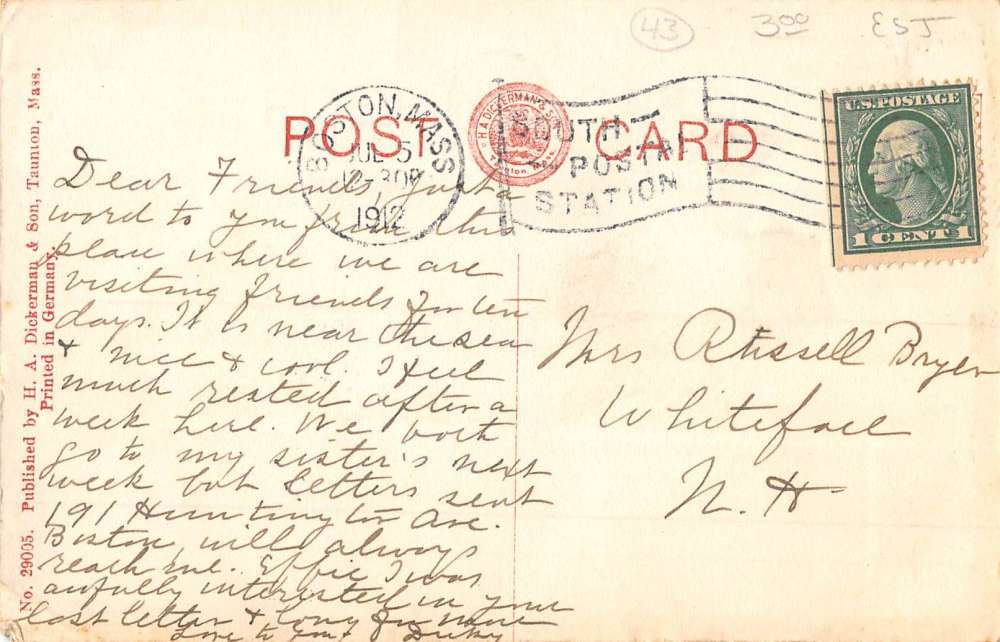 43
3.00
EST
No. 29005. Published by H. A. Dickerman & Son, Taunton, Mass.
Printed in Germany.
POST CARD
H. A. DICKERMAN & SON
Taunton, Mass.
BOSTON, MASS
JUL 5
12-30P
1912
SOUTH
POSTAL
STATION
U.S. POSTAGE
1 CENT 1
Dear Friends, Just a
word to you from this
place where we are
visiting friends for ten
days. It is near the sea
& nice & cool. I feel
much rested after a
week here. We both
go to my sister's next
week but letters sent
191 Huntington Ave.
Boston will always
reach me. Effie I was
awfully interested in your
last letter & long for more
Love to you
Mrs Russell Bryer
Whiteface
N. H